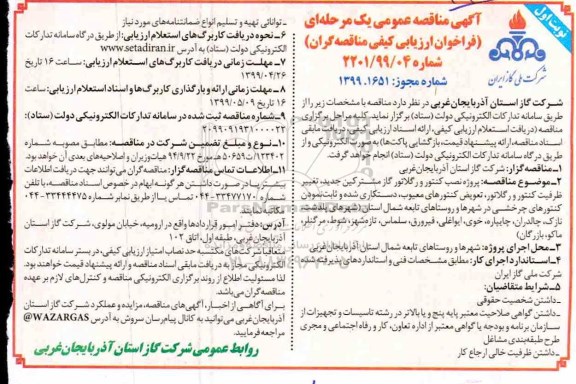 نوبت اول
آگهی مناقصه عمومی یک مرحله‌ای
(فراخوان ارزیابی کیفی مناقصه‌گران)
شماره ۲۲۰۱/۹۹/۰۴
شماره مجوز: ۱۳۹۹.۱۶۵۱
شرکت ملی گاز ایران
شرکت گاز استان آذربایجان‌غربی در نظر دارد مناقصه با مشخصات زیر را از
طریق سامانه تدارکات الکترونیکی دولت (ستاد) برگزار نماید. کلیه مراحل برگزاری
مناقصه (دریافت استعلام ارزیابی کیفی، ارائه اسناد ارزیابی کیفی، دریافت مابقی
اسناد مناقصه، ارائه پیشنهاد قیمت، بازگشایی پاکت‌ها) به صورت الکترونیکی و از
طریق درگاه سامانه تدارکات الکترونیکی دولت (ستاد) انجام خواهد گرفت.
۱- مناقصه‌گزار: شرکت گاز استان آذربایجان‌غربی
۲- موضوع مناقصه: پروژه نصب کنتور و رگلاتور گاز مشترکین جدید، تغییر
ظرفیت کنتور و رگلاتور، تعویض کنتورهای معیوب، دستکاری شده و ثابت نمودن
کنتورهای چرخشی در شهرها و روستاهای تابعه شمال استان (شهرهای پلدشت،
نازک، چالدران، چایپاره، خوی، ایواوغلی، فیرورق، سلماس، تازه‌شهر، شوط، مرگنلر،
ماکو، بازرگان)
۳- محل اجرای پروژه: شهرها و روستاهای تابعه شمال استان آذربایجان غربی
۴- استاندارد اجرای کار: مطابق مشخصات فنی و استانداردهای پذیرفته شده
شرکت ملی گاز ایران
۵- شرایط متقاضیان:
- داشتن شخصیت حقوقی
- داشتن گواهی صلاحیت معتبر پایه پنج و یا بالاتر در رشته تاسیسات و تجهیزات از
سازمان برنامه و بودجه یا گواهی معتبر از اداره تعاون، کار و رفاه اجتماعی و مجری
طرح طبقه‌بندی مشاغل
- داشتن ظرفیت خالی ارجاع کار
- توانائی تهیه و تسلیم انواع ضمانتنامه‌های مورد نیاز
۶- نحوه دریافت کاربرگ‌های استعلام ارزیابی: از طریق درگاه سامانه تدارکات
الکترونیکی دولت (ستاد) به آدرس www.setadiran.ir
۷- مهلت زمانی دریافت کاربرگ‌های استعلام ارزیابی: ساعت ۱۶ تاریخ
۱۳۹۹/۰۴/۲۶
۸- مهلت زمانی ارائه و بارگذاری کاربرگ‌ها و اسناد استعلام ارزیابی: ساعت
۱۶ تاریخ ۱۳۹۹/۰۵/۰۹
۹- شماره مناقصه ثبت شده در سامانه تدارکات الکترونیکی دولت (ستاد):
۲۰۹۹۰۹۱۹۳۱۰۰۰۰۲۲
۱۰- نوع و مبلغ تضمین شرکت در مناقصه: مطابق مصوبه شماره
۱۲۳۴۰۲/ت۵۰۶۵۹هـ مورخ ۹۴/۹/۲۲ هیات وزیران و اصلاحیه‌های بعدی آن خواهد بود.
۱۱- اطلاعات تماس مناقصه‌گزار: مناقصه‌گران می‌توانند جهت دریافت اطلاعات
بیشتر و یا در صورت داشتن هر گونه ابهام در خصوص اسناد مناقصه، با تلفن
شماره ۳۳۴۷۷۱۷۰-۰۴۴ تماس و یا از طریق نمابر شماره ۳۳۴۴۴۴۷۵-۰۴۴
مکاتبه نمایند.
آدرس: دفتر امور قراردادها واقع در ارومیه، خیابان مولوی، شرکت گاز استان
آذربایجان غربی، طبقه اول، اتاق ۱۰۲
متعاقبا شرکت‌های مکتسبه حد نصاب امتیاز ارزیابی کیفی، در بستر سامانه تدارکات
الکترونیکی مجاز به دریافت مابقی اسناد مناقصه و ارائه پیشنهاد قیمت خواهند بود.
لذا مسئولیت اطلاع از روند برگزاری الکترونیکی مناقصه و کنترل‌های لازم بر عهده
مناقصه‌گران می‌باشد.
برای آگاهی از اخبار، آگهی‌های مناقصه، مزایده و عملکرد شرکت گاز استان
آذربایجان غربی می‌توانید به کانال پیام‌رسان سروش به آدرس @WAZARGAS
مراجعه فرمایید.
روابط عمومی شرکت گاز استان آذربایجان غربی